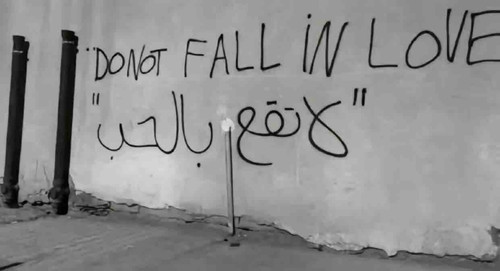 "DO NOT FALL IN LOVE
"لا تقع بالحب"